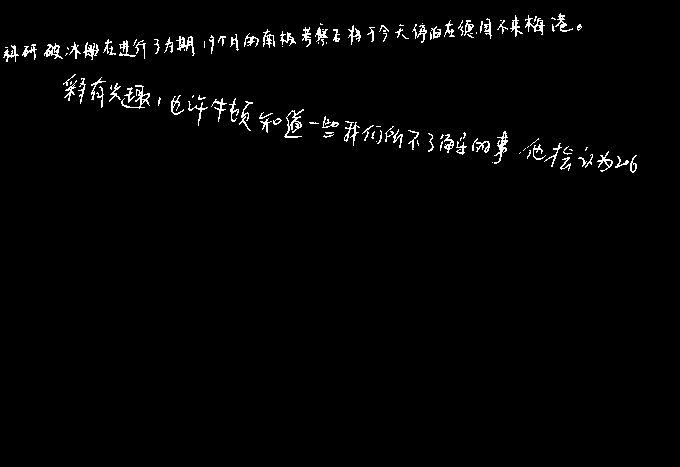 科研破冰船在进行了为期19个月的南极考察后将于今天停泊在德国不来梅港。
很有兴趣，也许牛顿知道一些我们所不了解的事他会认为206